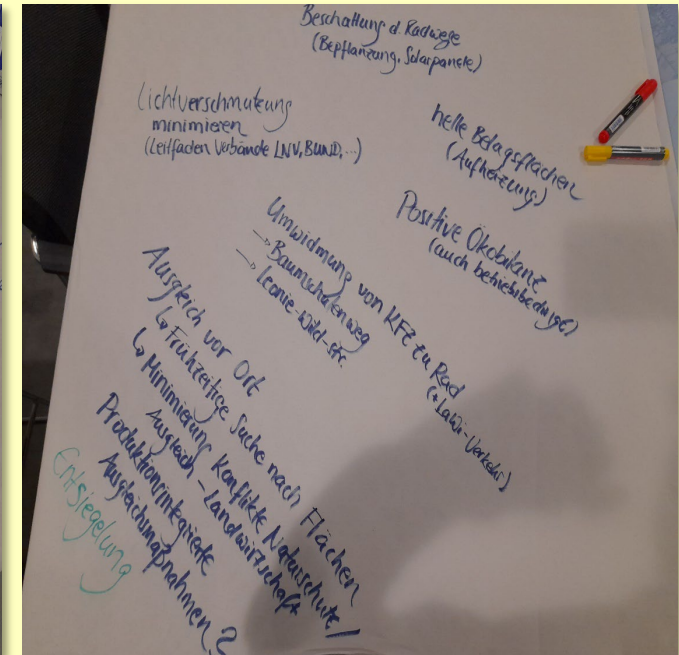 Beschattung d. Radwege
(Bepflanzung, Solarpanele)
Lichtverschmutzung
minimieren
(Leitfaden Verbände LNV, BUND,...)
helle Belagsflächen
(Aufheizung)
Positive Ökobilanz
(auch betriebsbedingt)
Umwidmung von KFZ zu Rad
(+ LaWi-Verkehr)
→ Baumschulenweg
→ Leonie-Wild-Str.
Ausgleich vor Ort
↳ Frühzeitige Suche nach Flächen
↳ Minimierung Konflikte Naturschutz/
Ausgleich - Landwirtschaft
Produktionsintegrierte
Ausgleichsmaßnahmen?
Entsiegelung